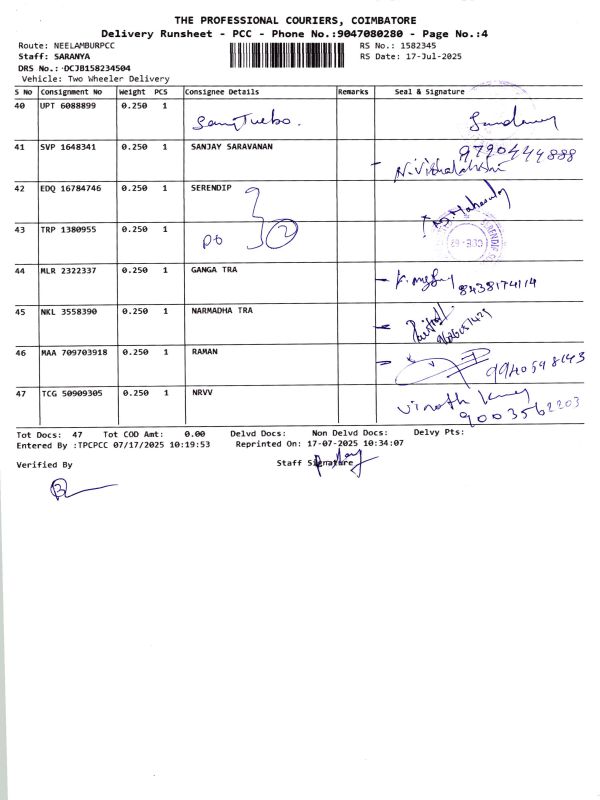 THE PROFESSIONAL COURIERS, COIMBATORE
Delivery Runsheet - PCC - Phone No.:9047080280 - Page No.:4
Route: NEELAMBURPCC RS No.: 1582345
Staff: SARANYA RS Date: 17-Jul-2025
DRS No.: DCJB158234504
Vehicle: Two Wheeler Delivery
S No Consignment No Weight PCS Consignee Details Remarks Seal & Signature
40 UPT 6088899 0.250 1
41 SVP 1648341 0.250 1 SANJAY SARAVANAN 9790444888
42 EDQ 16784746 0.250 1 SERENDIP
43 TRP 1380955 0.250 1 2
44 MLR 2322337 0.250 1 GANGA TRA 8438174114
45 NKL 3558390 0.250 1 NARMADHA TRA
46 MAA 709703918 0.250 1 RAMAN 9940598143
47 TCG 50909305 0.250 1 NRVV Vinoth
9003562203
Tot Docs: 47 Tot COD Amt: 0.00 Delvd Docs: Non Delvd Docs: Delvy Pts:
Entered By :TPCPCC 07/17/2025 10:19:53 Reprinted On: 17-07-2025 10:34:07
Verified By Staff Signature